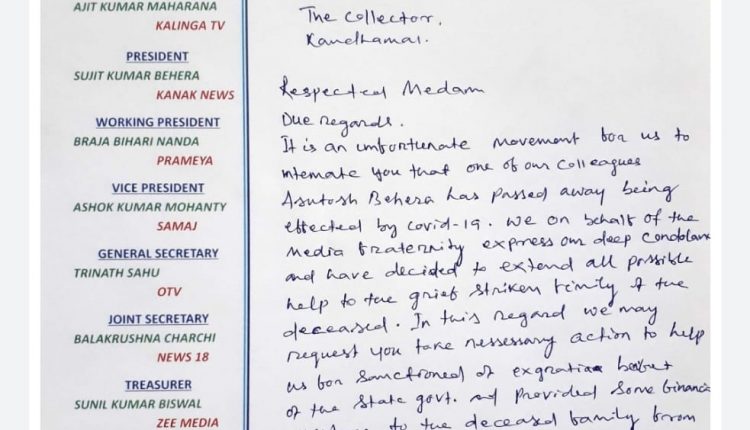 AJIT KUMAR MAHARANA
KALINGA TV
PRESIDENT
SUJIT KUMAR BEHERA
KANAK NEWS
WORKING PRESIDENT
BRAJA BIHARI NANDA
PRAMEYA
VICE PRESIDENT
ASHOK KUMAR MOHANTY
SAMAJ
GENERAL SECRETARY
TRINATH SAHU
OTV
JOINT SECRETARY
BALAKRUSHNA CHARCHI
NEWS 18
TREASURER
SUNIL KUMAR BISWAL
ZEE MEDIA
The Collector,
Kandhamal.
Respected Medam
Due regards.
It is an unfortunate movement for us to
intemate you that one of our colleagues
Asutosh Behera has passed away being
effected by covid-19. We on behalf of the
media fraternity express our deep condolan
and have decided to extend all possible
help to the grief striken family of the
deceased. In this regard we may
request you take nessessary action to help
us for sanctioned of exgratia
of the State govt. and Provided Some financia
to the deceased family from